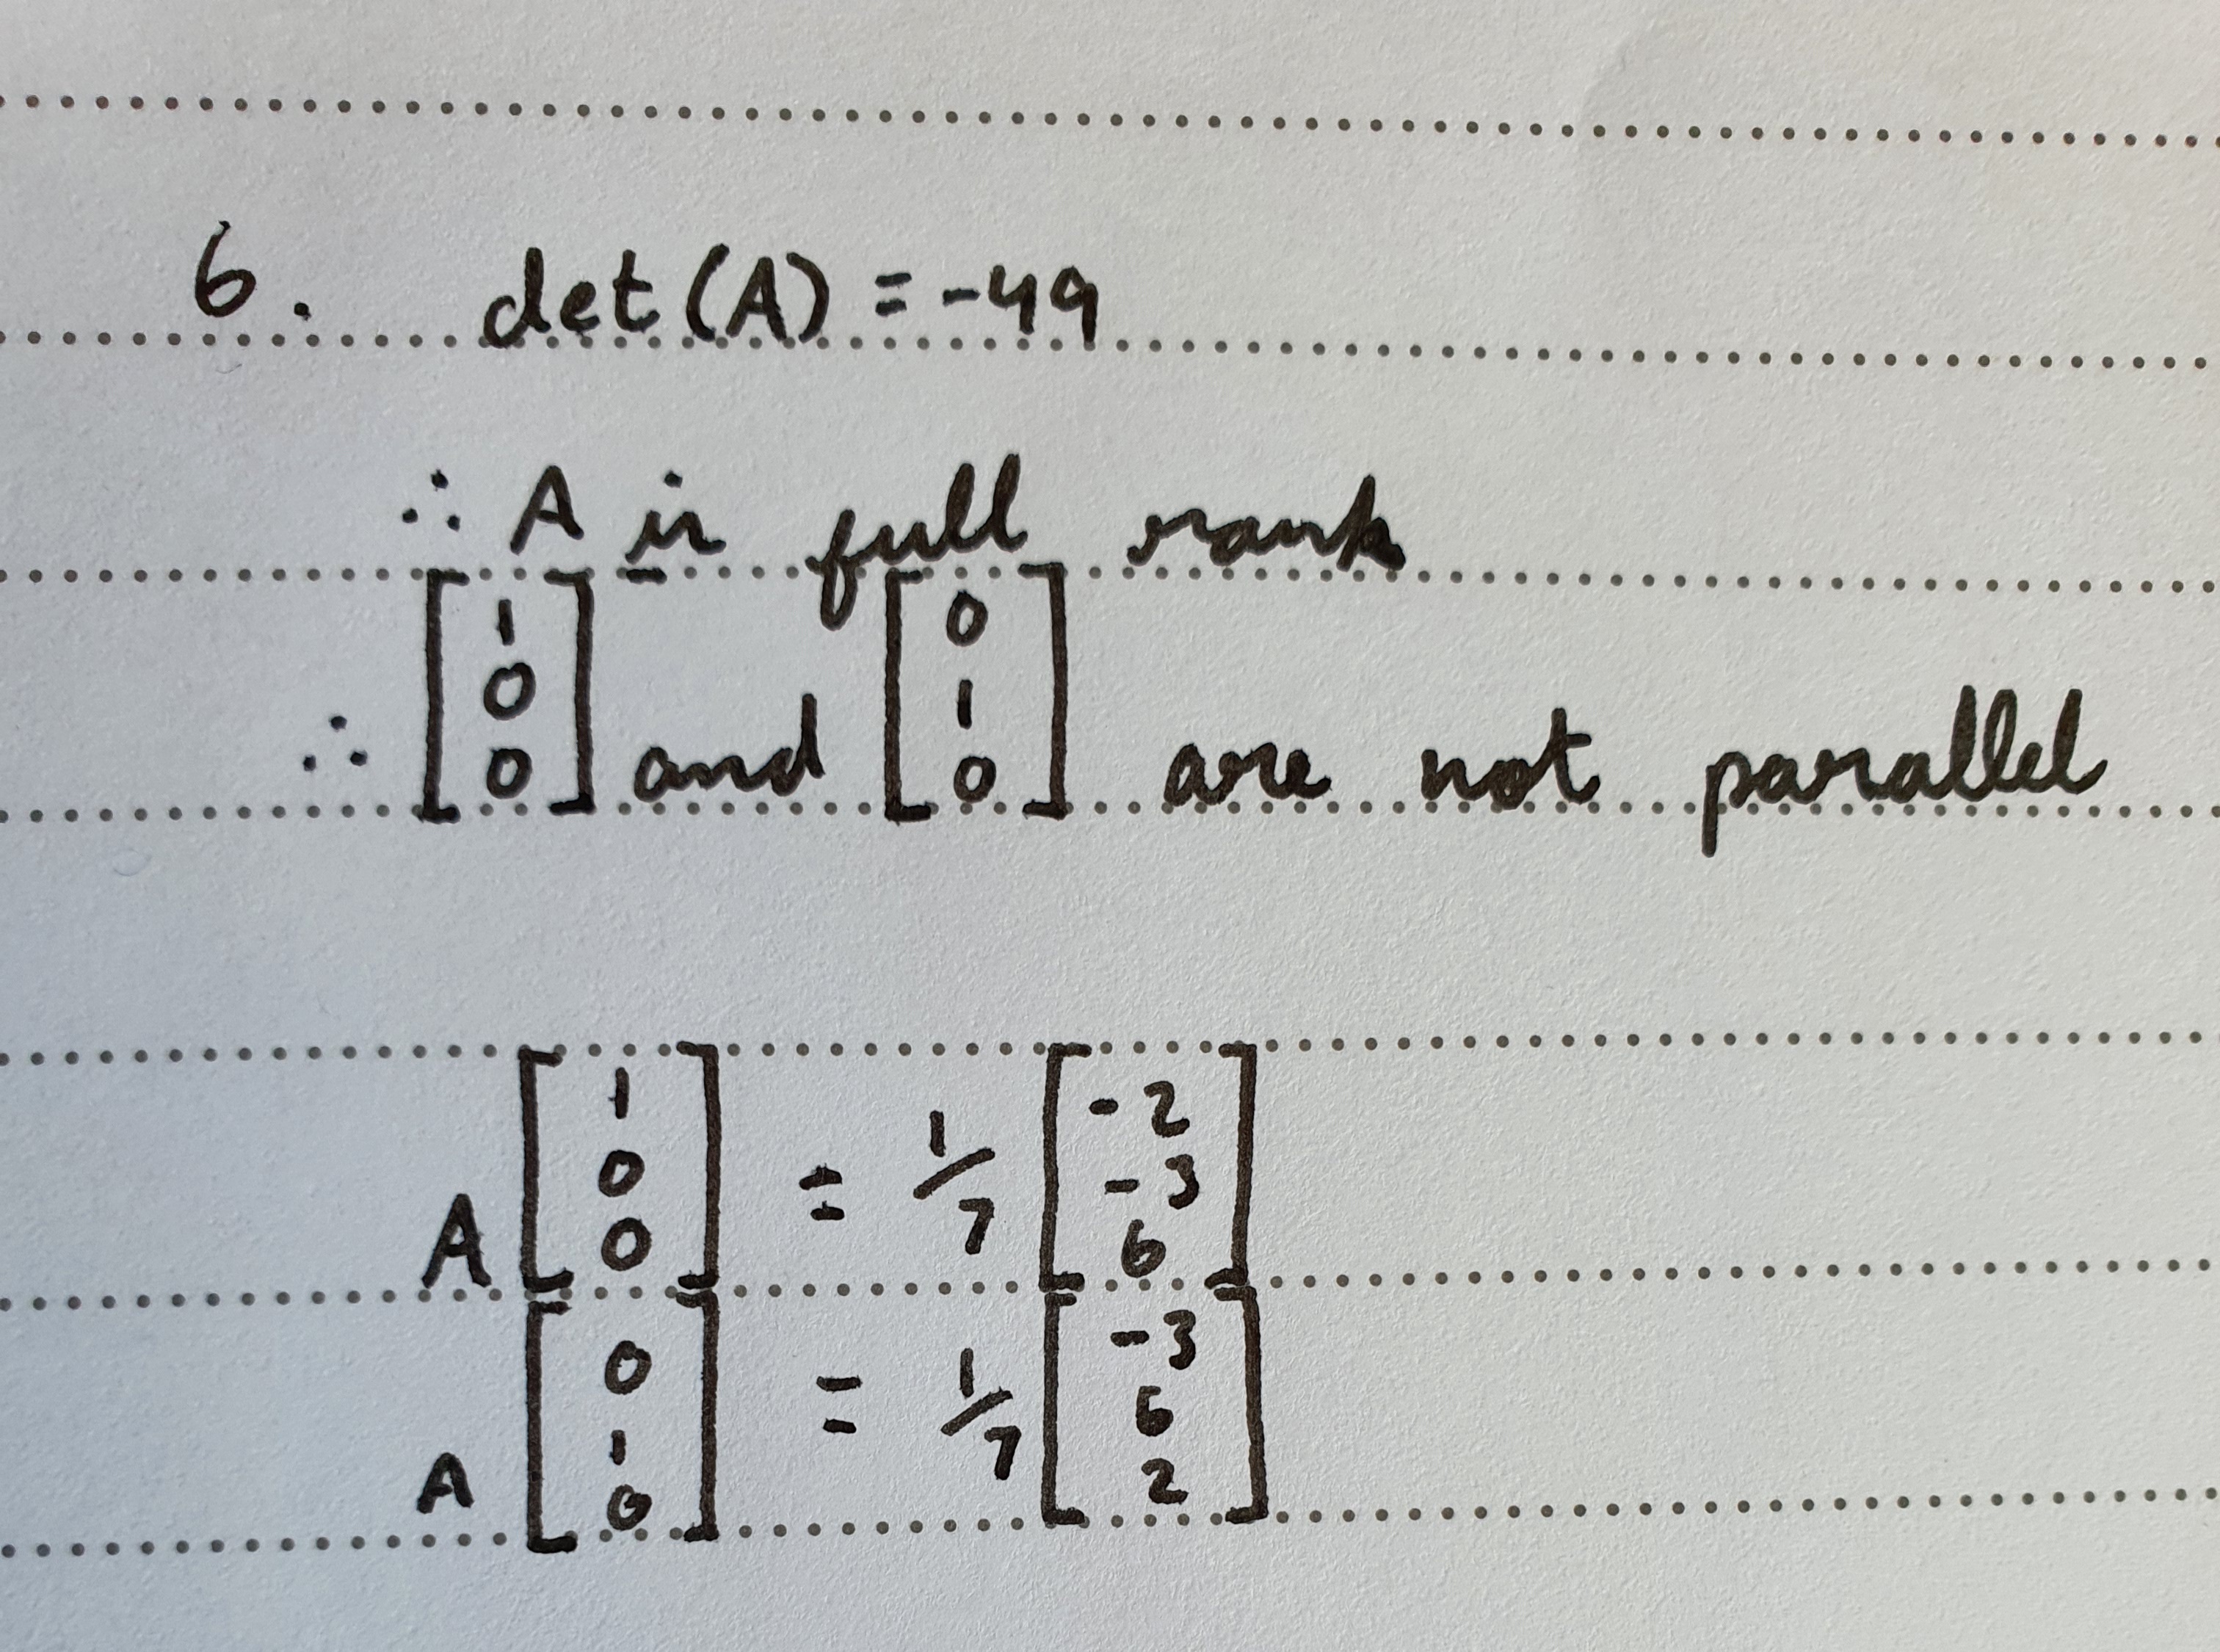 6. det(A) = -49
∴ A is full rank
∴ [1 0 0] and [0 1 0] are not parallel
A [1 0 0] = 1/7 [-2 -3 6]
A [0 1 0] = 1/7 [-3 6 2]